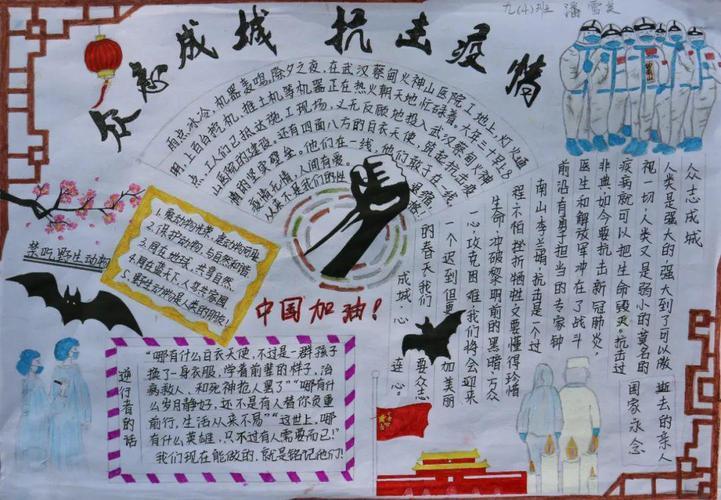 九(4)班 潘雪
众志成城 抗击疫情
雨点冰冷,机器轰鸣,除夕之夜,在武汉蔡甸火神山医院工地上,灯火通
明,上百台挖机、推土机等机器正在热火朝天地忙碌着。大年三十早上8
点,工人们已抵达施工现场,义无反顾地投入武汉蔡甸火神
山医院的建设。还有四面八方的白衣天使,筑起抗击疫
情的坚实壁垒。他们在一线,他们敢于在一线,
疫情无情,人间有爱。
从来不是我们的性格!
禁吃野生动物
1.爱动物世界,善动物所
2.保护动物,与自然和谐
3.同在地球,共享自然
4.同在蓝天下,人与共家园
5.野生动物是人类的朋友!
中国加油!
众志成城
人类是强大的强大到了可以傲
视一切,人类又是弱小的莫名的
疫病就可以把生命毁灭。抗击过
非典如今要抗击新冠肺炎,
医生和解放军冲在了战斗
前沿有勇于担当的专家钟
南山李兰娟,抗击是一个过
程不怕挫折牺牲又要懂得珍惜
生命,冲破黎明前的黑暗,万众
一心,攻克困难我们将会迎来
一个迟到但更加美丽
的春天我们要众志
成城,心连心。
逝去的亲人
国家永念
逆行者的话
“哪有什么白衣天使,不过是一群孩子
换了一身衣服,学着前辈的样子,治
病救人,和死神抢人罢了”“哪有什
么岁月静好,还不是有人替你负重
前行,生活从来不易”“这世上,哪
有什么英雄,只不过有人需要而已!”
我们现在能做的,就是铭记他们!